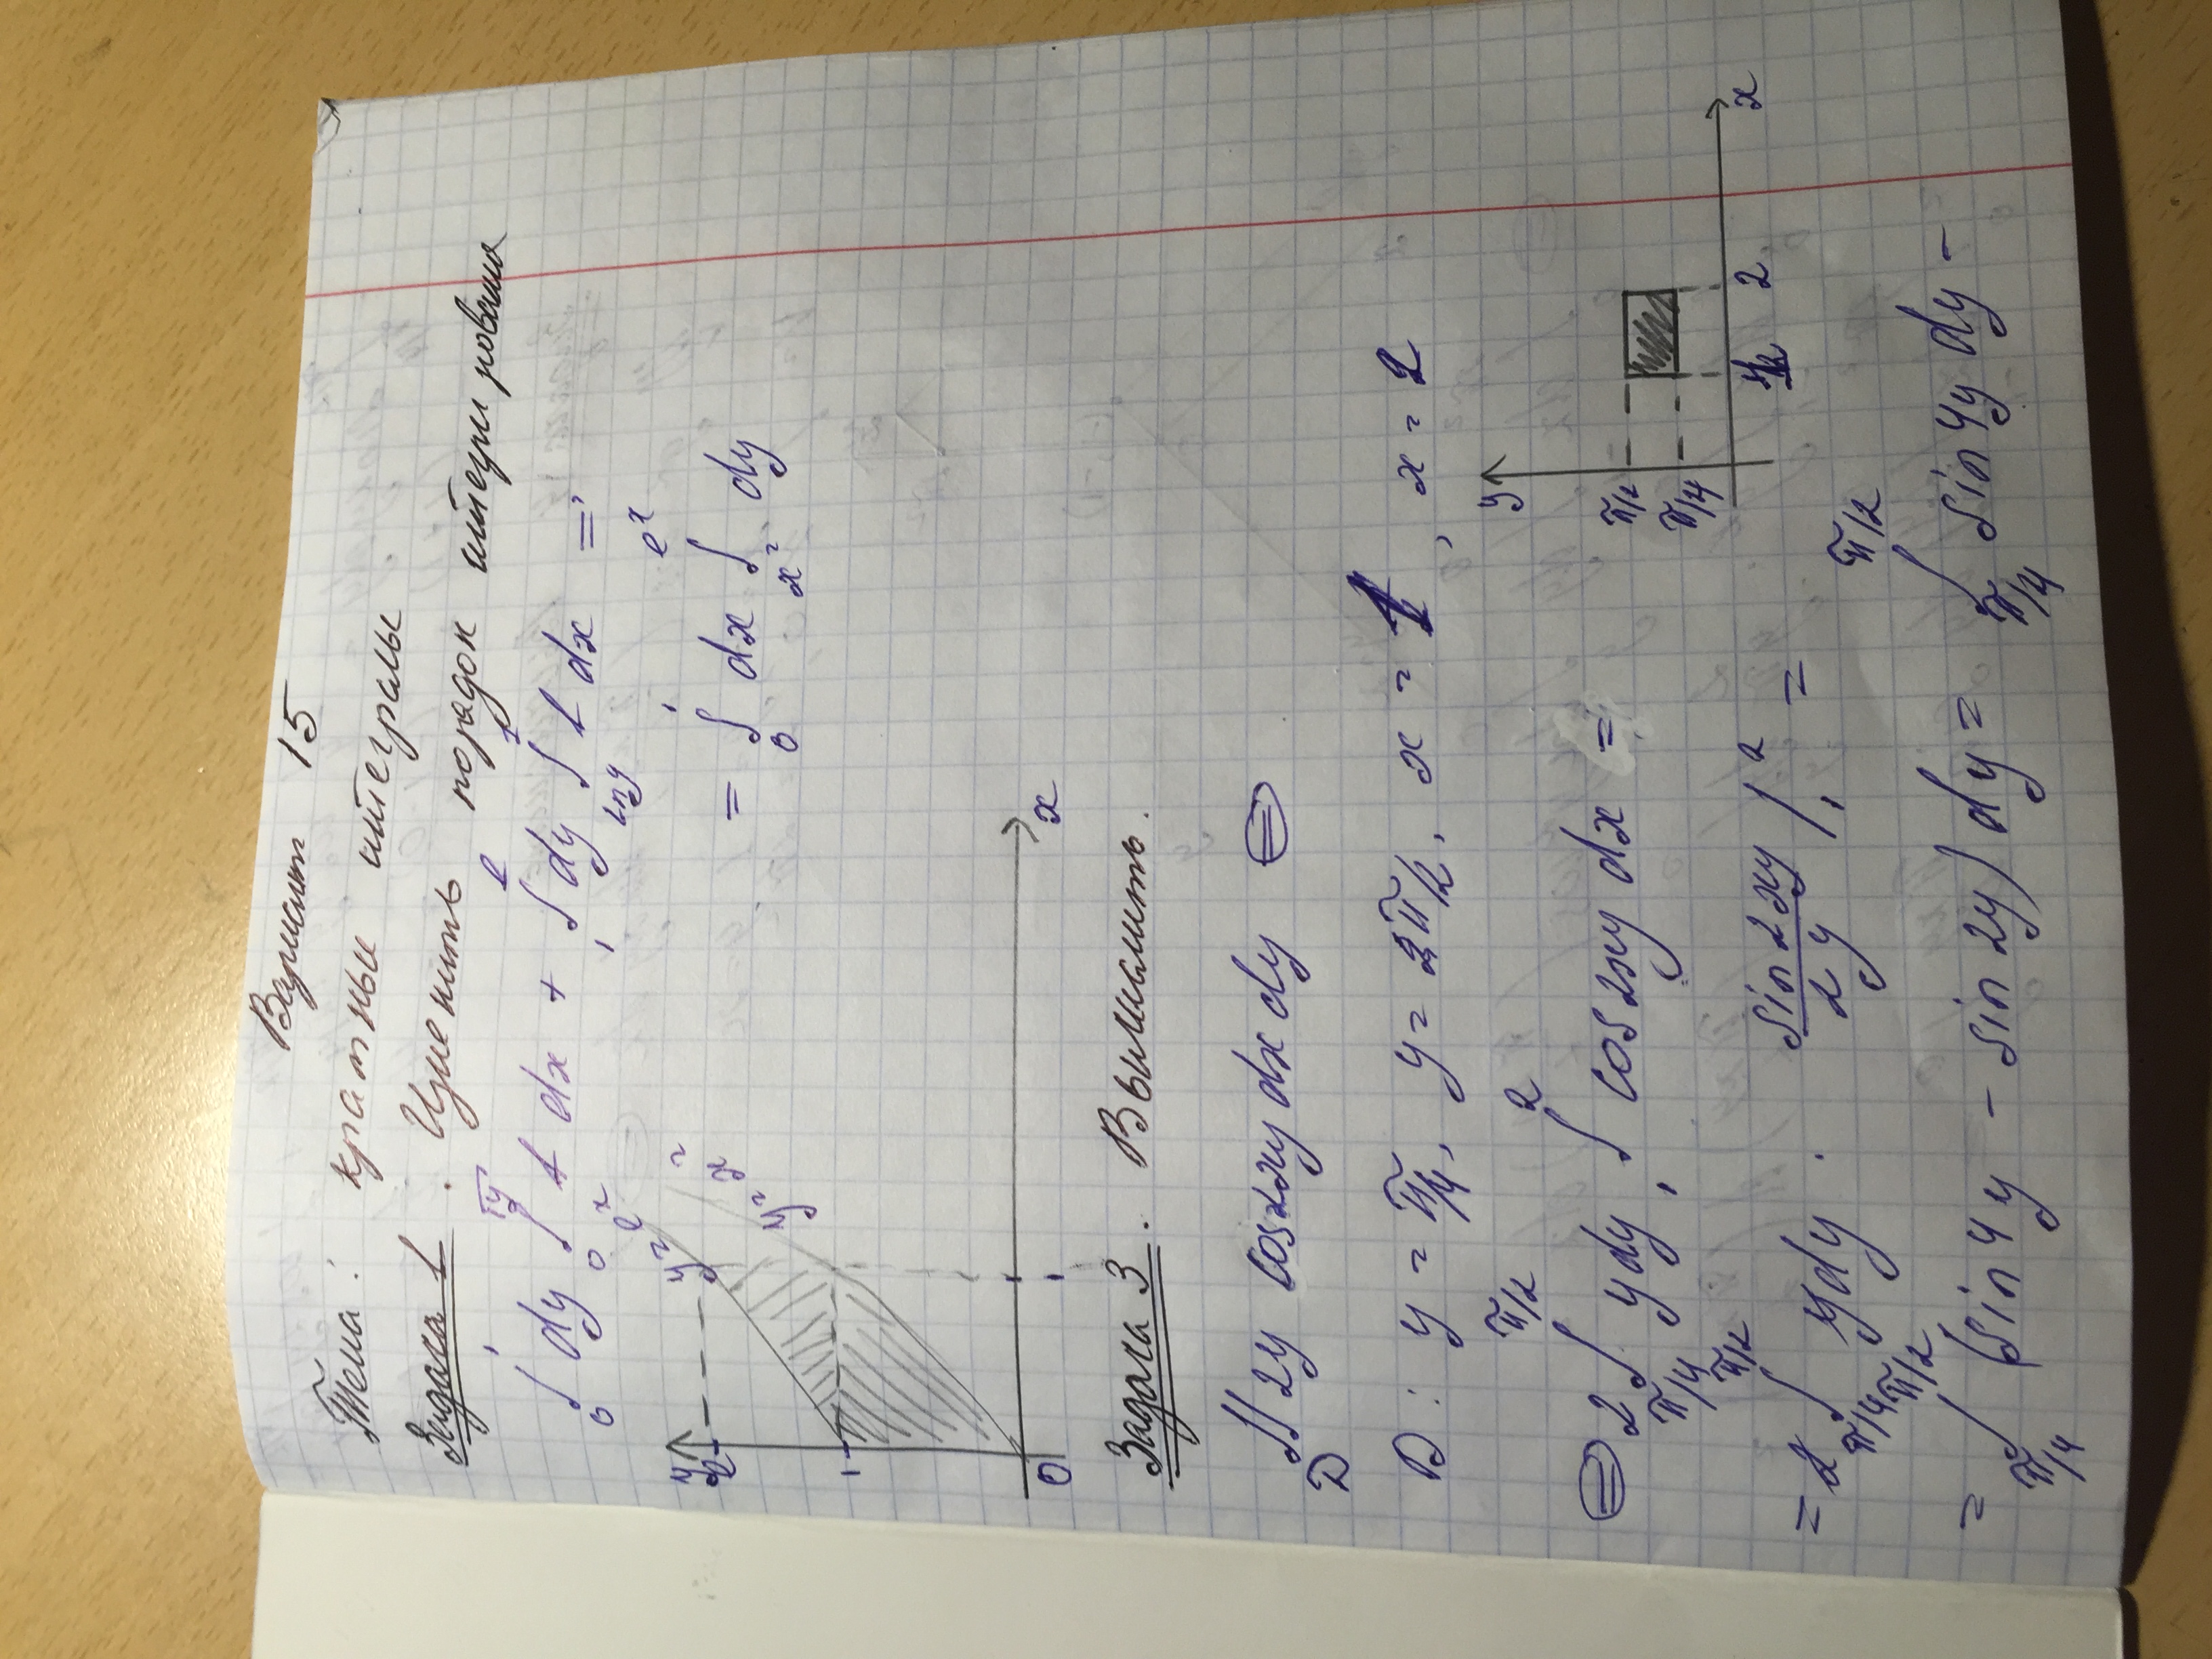 Вариант 15
Тема: кратные интегралы
Задача 1. Изменить порядок интегрирования
∫₀¹ dy ∫₀^√y f dx + ∫₁^e dy ∫_ln y^1 f dx =
= ∫₀¹ dx ∫_x²^eˣ dy
y
e
y = eˣ
y = x²
1
0
1
x
Задача 3. Вычислить.
∬_D 2y cos2xy dx dy ⊜
D: y = π/4, y = π/2, x = 1, x = 2
⊜ 2 ∫_π/4^π/2 y dy ∫₁² cos2xy dx =
y
π/2
π/4
2
x
= 2 ∫_π/4^π/2 y dy · sin2xy / 2y |₁² =
= ∫_π/4^π/2 (sin4y - sin2y) dy = ∫_π/4^π/2 sin4y dy -